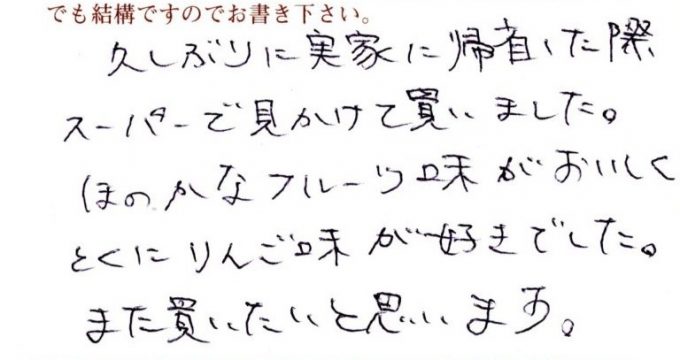 でも結構ですのでお書き下さい。
久しぶりに実家に帰省した際
スーパーで見かけて買いました。
ほのかなフルーツ味がおいしく
とくにりんご味が好きでした。
また買いたいと思います。